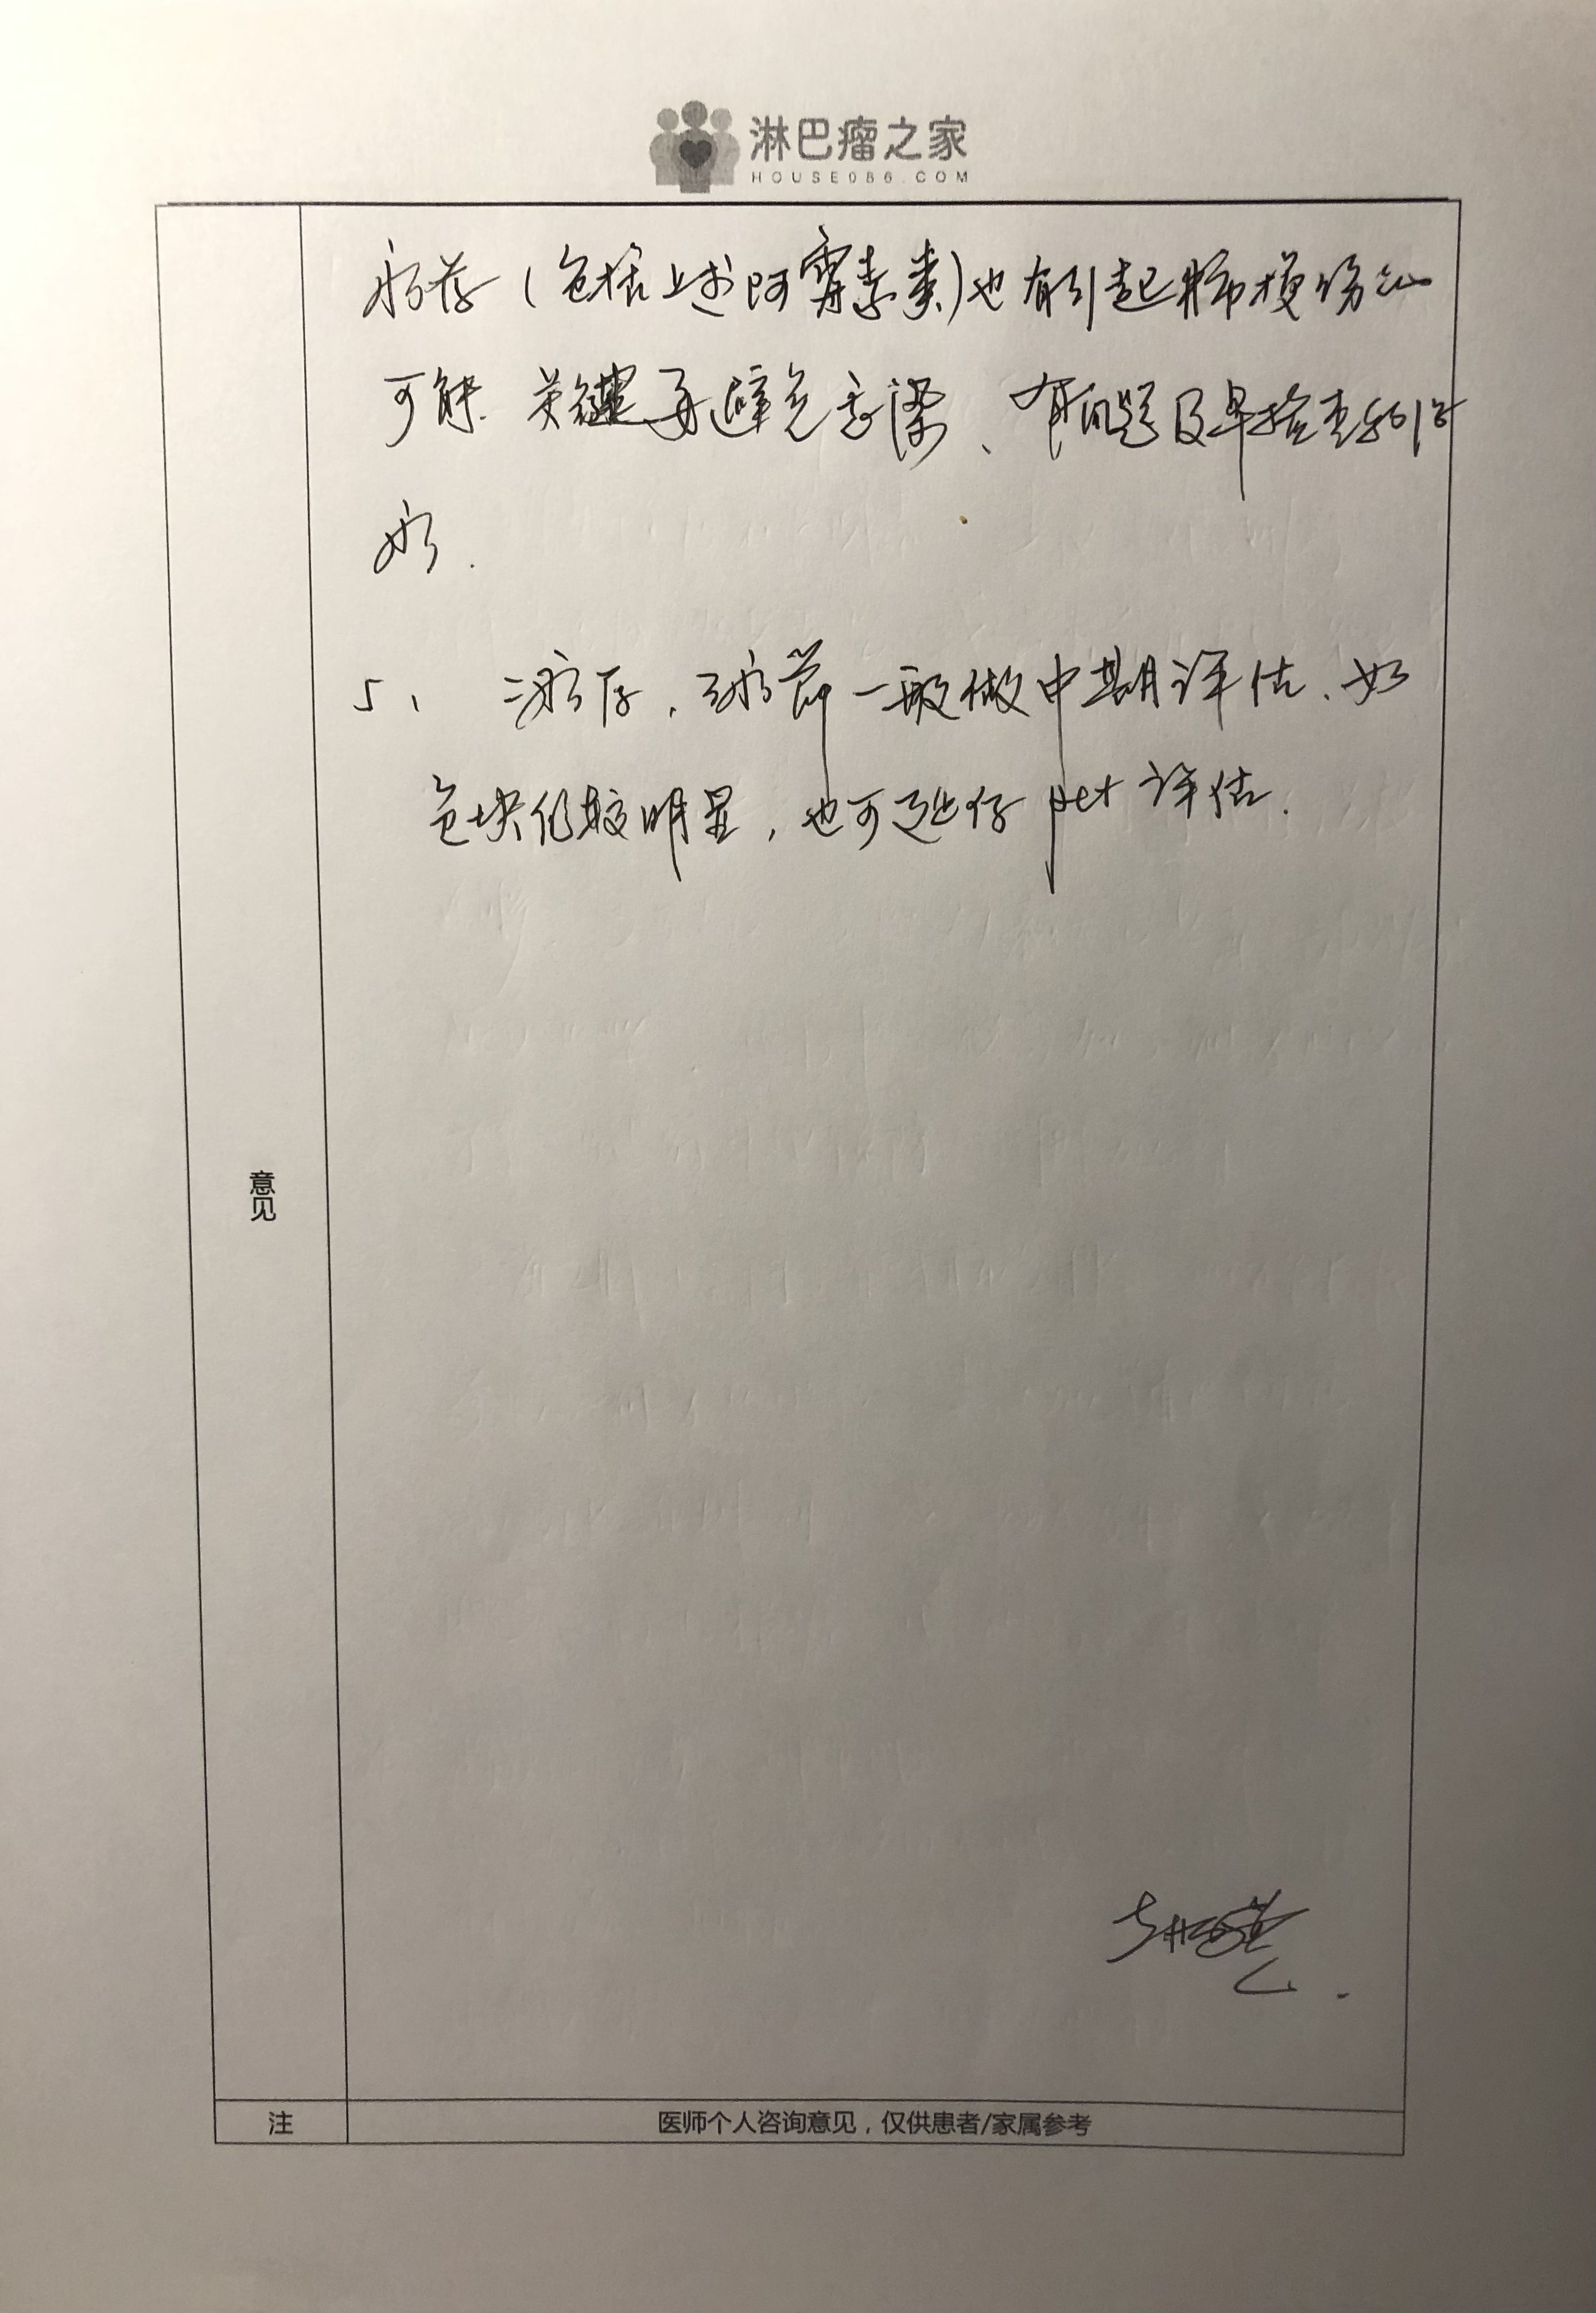 淋巴瘤之家
HOUSE086.COM
疗药(包括上述阿霉素类)也有引起肺损伤的
可能.关键要避免感染、有问题及早检查和治
疗.
5、二疗后,三疗前一般做中期评估、如
包块化较明显,也可延后pet评估.
意见
注
医师个人咨询意见,仅供患者/家属参考